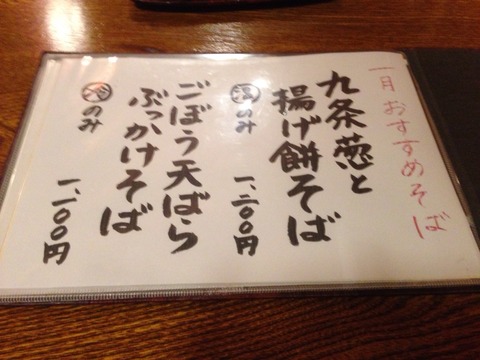 一月 おすすめそば
九条葱と
揚げ餅そば
温のみ
一、二〇〇円
ごぼう天ばら
ぶっかけそば
冷のみ
一、一〇〇円